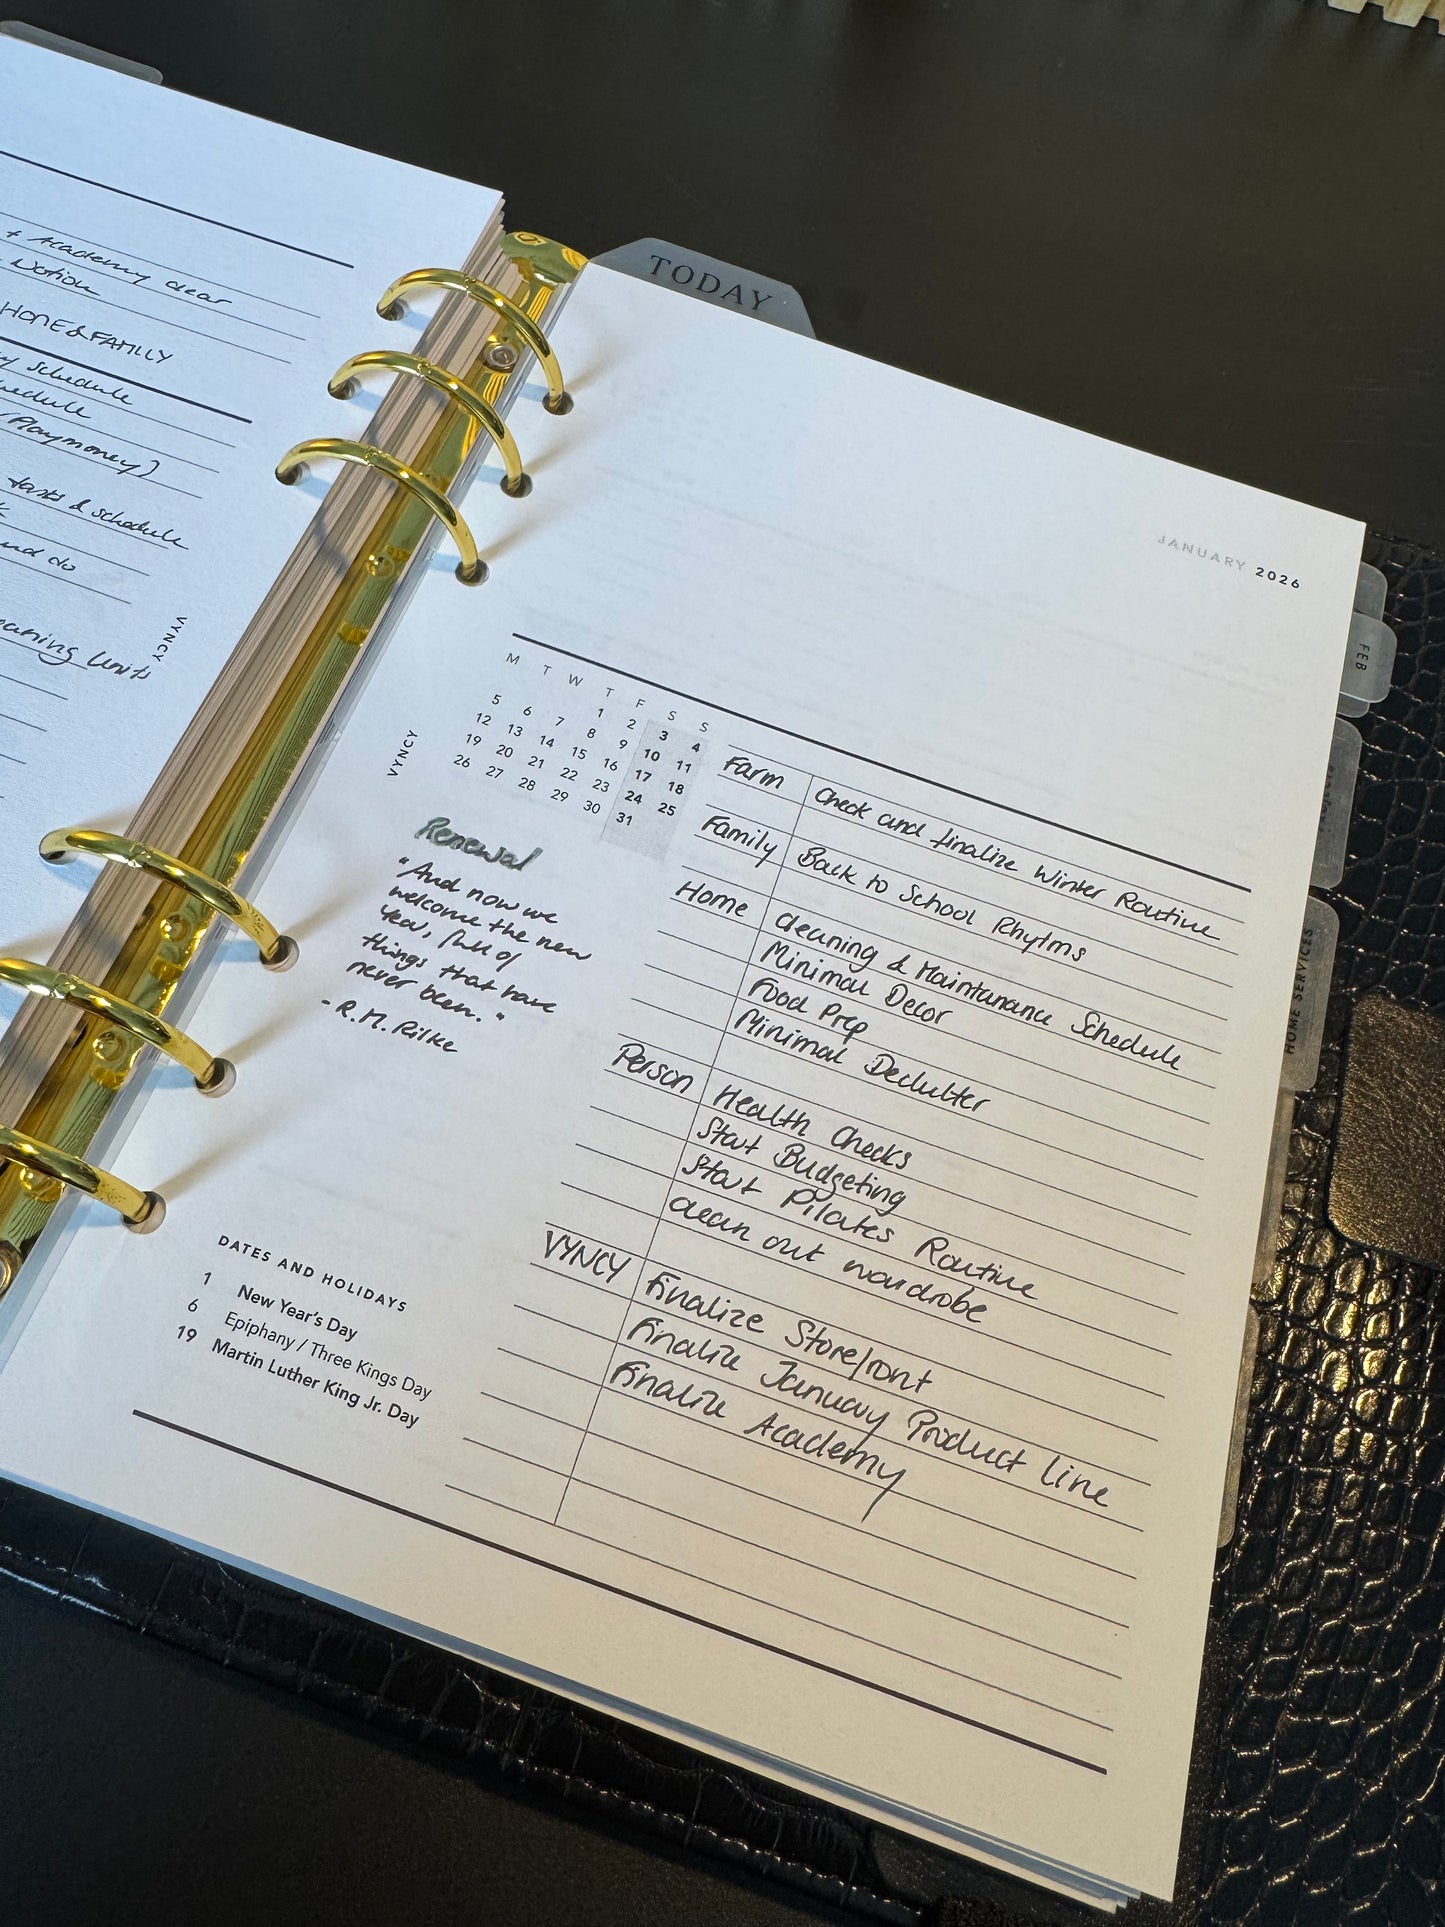 + Academy clear
Notion
HOME & FAMILY
schedule
(Playmoney)
tasks & schedule
and do
Units
VYNCY
TODAY
JANUARY 2026
M T W T F S S
1 2 3 4
5 6 7 8 9 10 11
12 13 14 15 16 17 18
19 20 21 22 23 24 25
26 27 28 29 30 31
VYNCY
Renewal
"And now we
welcome the new
Year, full of
things that have
never been."
- R.M. Rilke
DATES AND HOLIDAYS
1 New Year's Day
6 Epiphany / Three Kings Day
19 Martin Luther King Jr. Day
Farm Check and finalize Winter Routine
Family Back to School Rhytms
Home Cleaning & Maintanance Schedule
Minimal Decor
Food Prep
Minimal Declutter
Person Health Checks
Start Budgeting
Start Pilates Routine
clean out wardrobe
VYNCY Finalize Storefront
Finalize January Product Line
Finalize Academy
FEB
HOME SERVICES